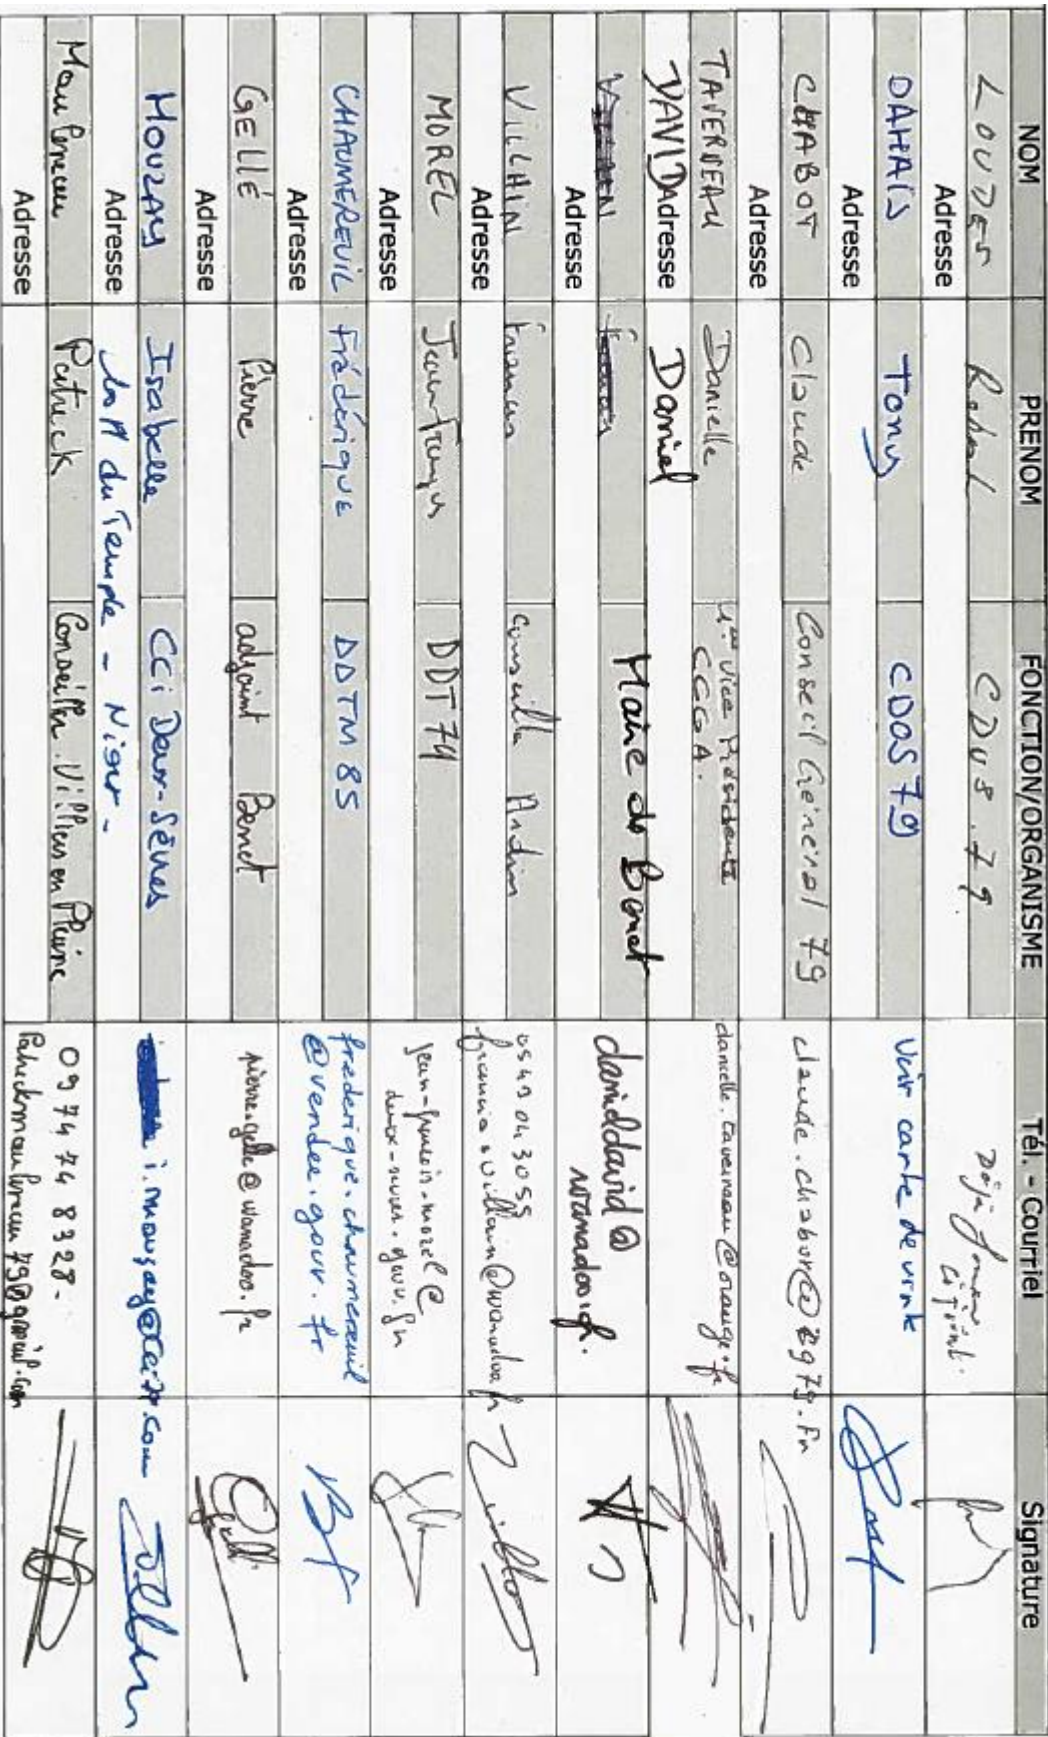 NOM PRENOM FONCTION/ORGANISME Tél. - Courriel Signature
LOUDES CDUS.79. Déjà
Adresse
DAHAIS Tony CDOS79 Voir carte de visite
Adresse
CHABOT Claude Conseil Général 79 claude.chabot@cg79.fr
Adresse
TAVERNEAU Danielle 1ère Vice Présidente danielle.taverneau@orange.fr
CCGA.
DAVID Daniel Maire de Benet danieldavid@
Adresse wanadoo.fr.
Adresse
VILLAIN Francis conseiller 0549043055
francis.villain@wanadoo.fr
Adresse
MOREL Jean François DDT 79 jean-francois.morel@
deux-sevres.gouv.fr
Adresse
CHAUMEREUIL Frédérique DDTM 85 frederique.chaumereuil
@vendee.gouv.fr
Adresse
GELLÉ Pierre adjoint Benet pierre.gelle@wanadoo.fr
Adresse
MOUZAY Isabelle CCi Deux-Sèvres i.mouzay@cci79.com
Adresse du Temple - Niort -
Patrick Conseiller Villiers en Plaine 0974748328-
Adresse